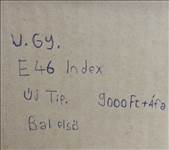 U.Gy.
E46 Index
Új Tip. 9000Ft+Áfa
Bal első